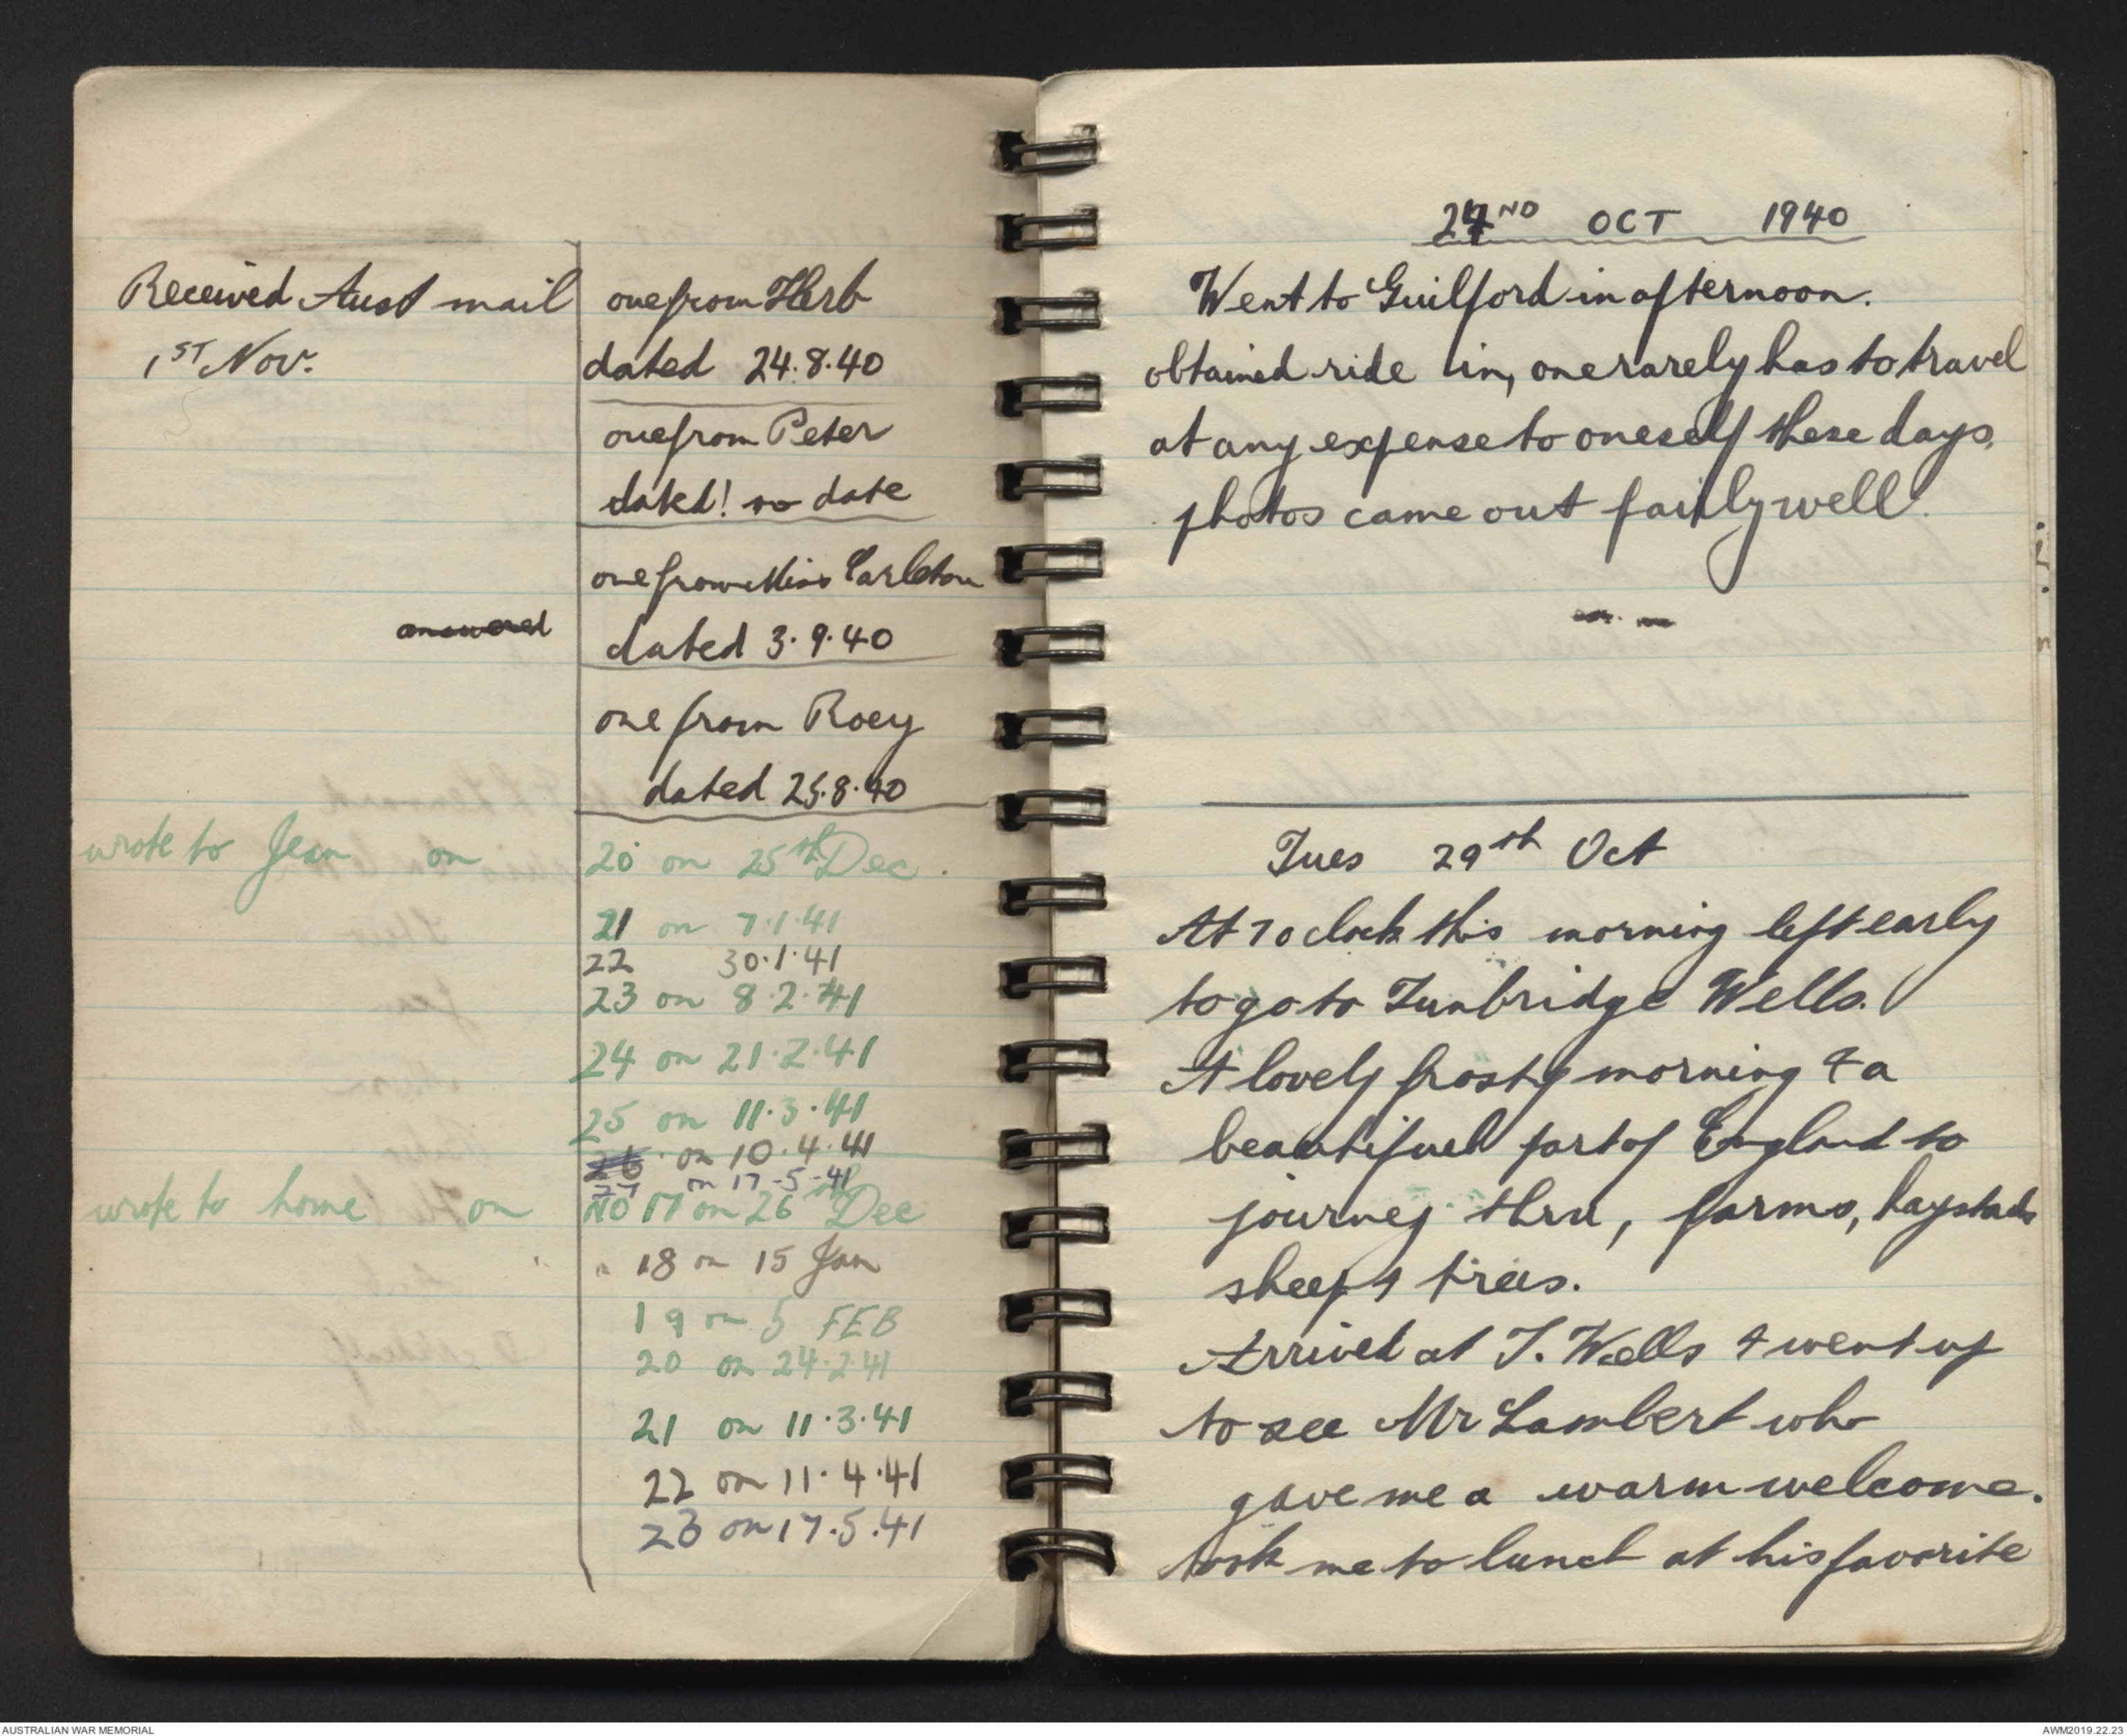 Received Aust mail
1ST Nov.
one from Herb
dated 24.8.40
one from Peter
dated! no date
one from Miss Carleton
answered
dated 3.9.40
one from Roey
dated 25.8.40
wrote to Jean on 20 on 25th Dec.
21 on 7.1.41
22 30.1.41
23 on 8.2.41
24 on 21.2.41
25 on 11.3.41
26 on 10.4.41
27 on 17-5-41
wrote to home on NO 17 on 26th Dec
" 18 on 15 Jan
19 on 5 FEB
20 on 24.2.41
21 on 11.3.41
22 on 11.4.41
23 on 17.5.41
ND OCT 1940
Went to Guilford in afternoon.
obtained ride in, one rarely has to travel
at any expense to oneself these days,
photos came out fairly well.
Tues 29th Oct
At 7 o clock this morning left early
to go to Tunbridge Wells.
A lovely frosty morning & a
beautifuel part of England to
journey thru, farms, haystacks
sheep & trees.
Arrived at T. Wells & went up
to see Mr Lambert who
gave me a warm welcome.
took me to lunch at his favorite
AUSTRALIAN WAR MEMORIAL
AWM2019.22.23